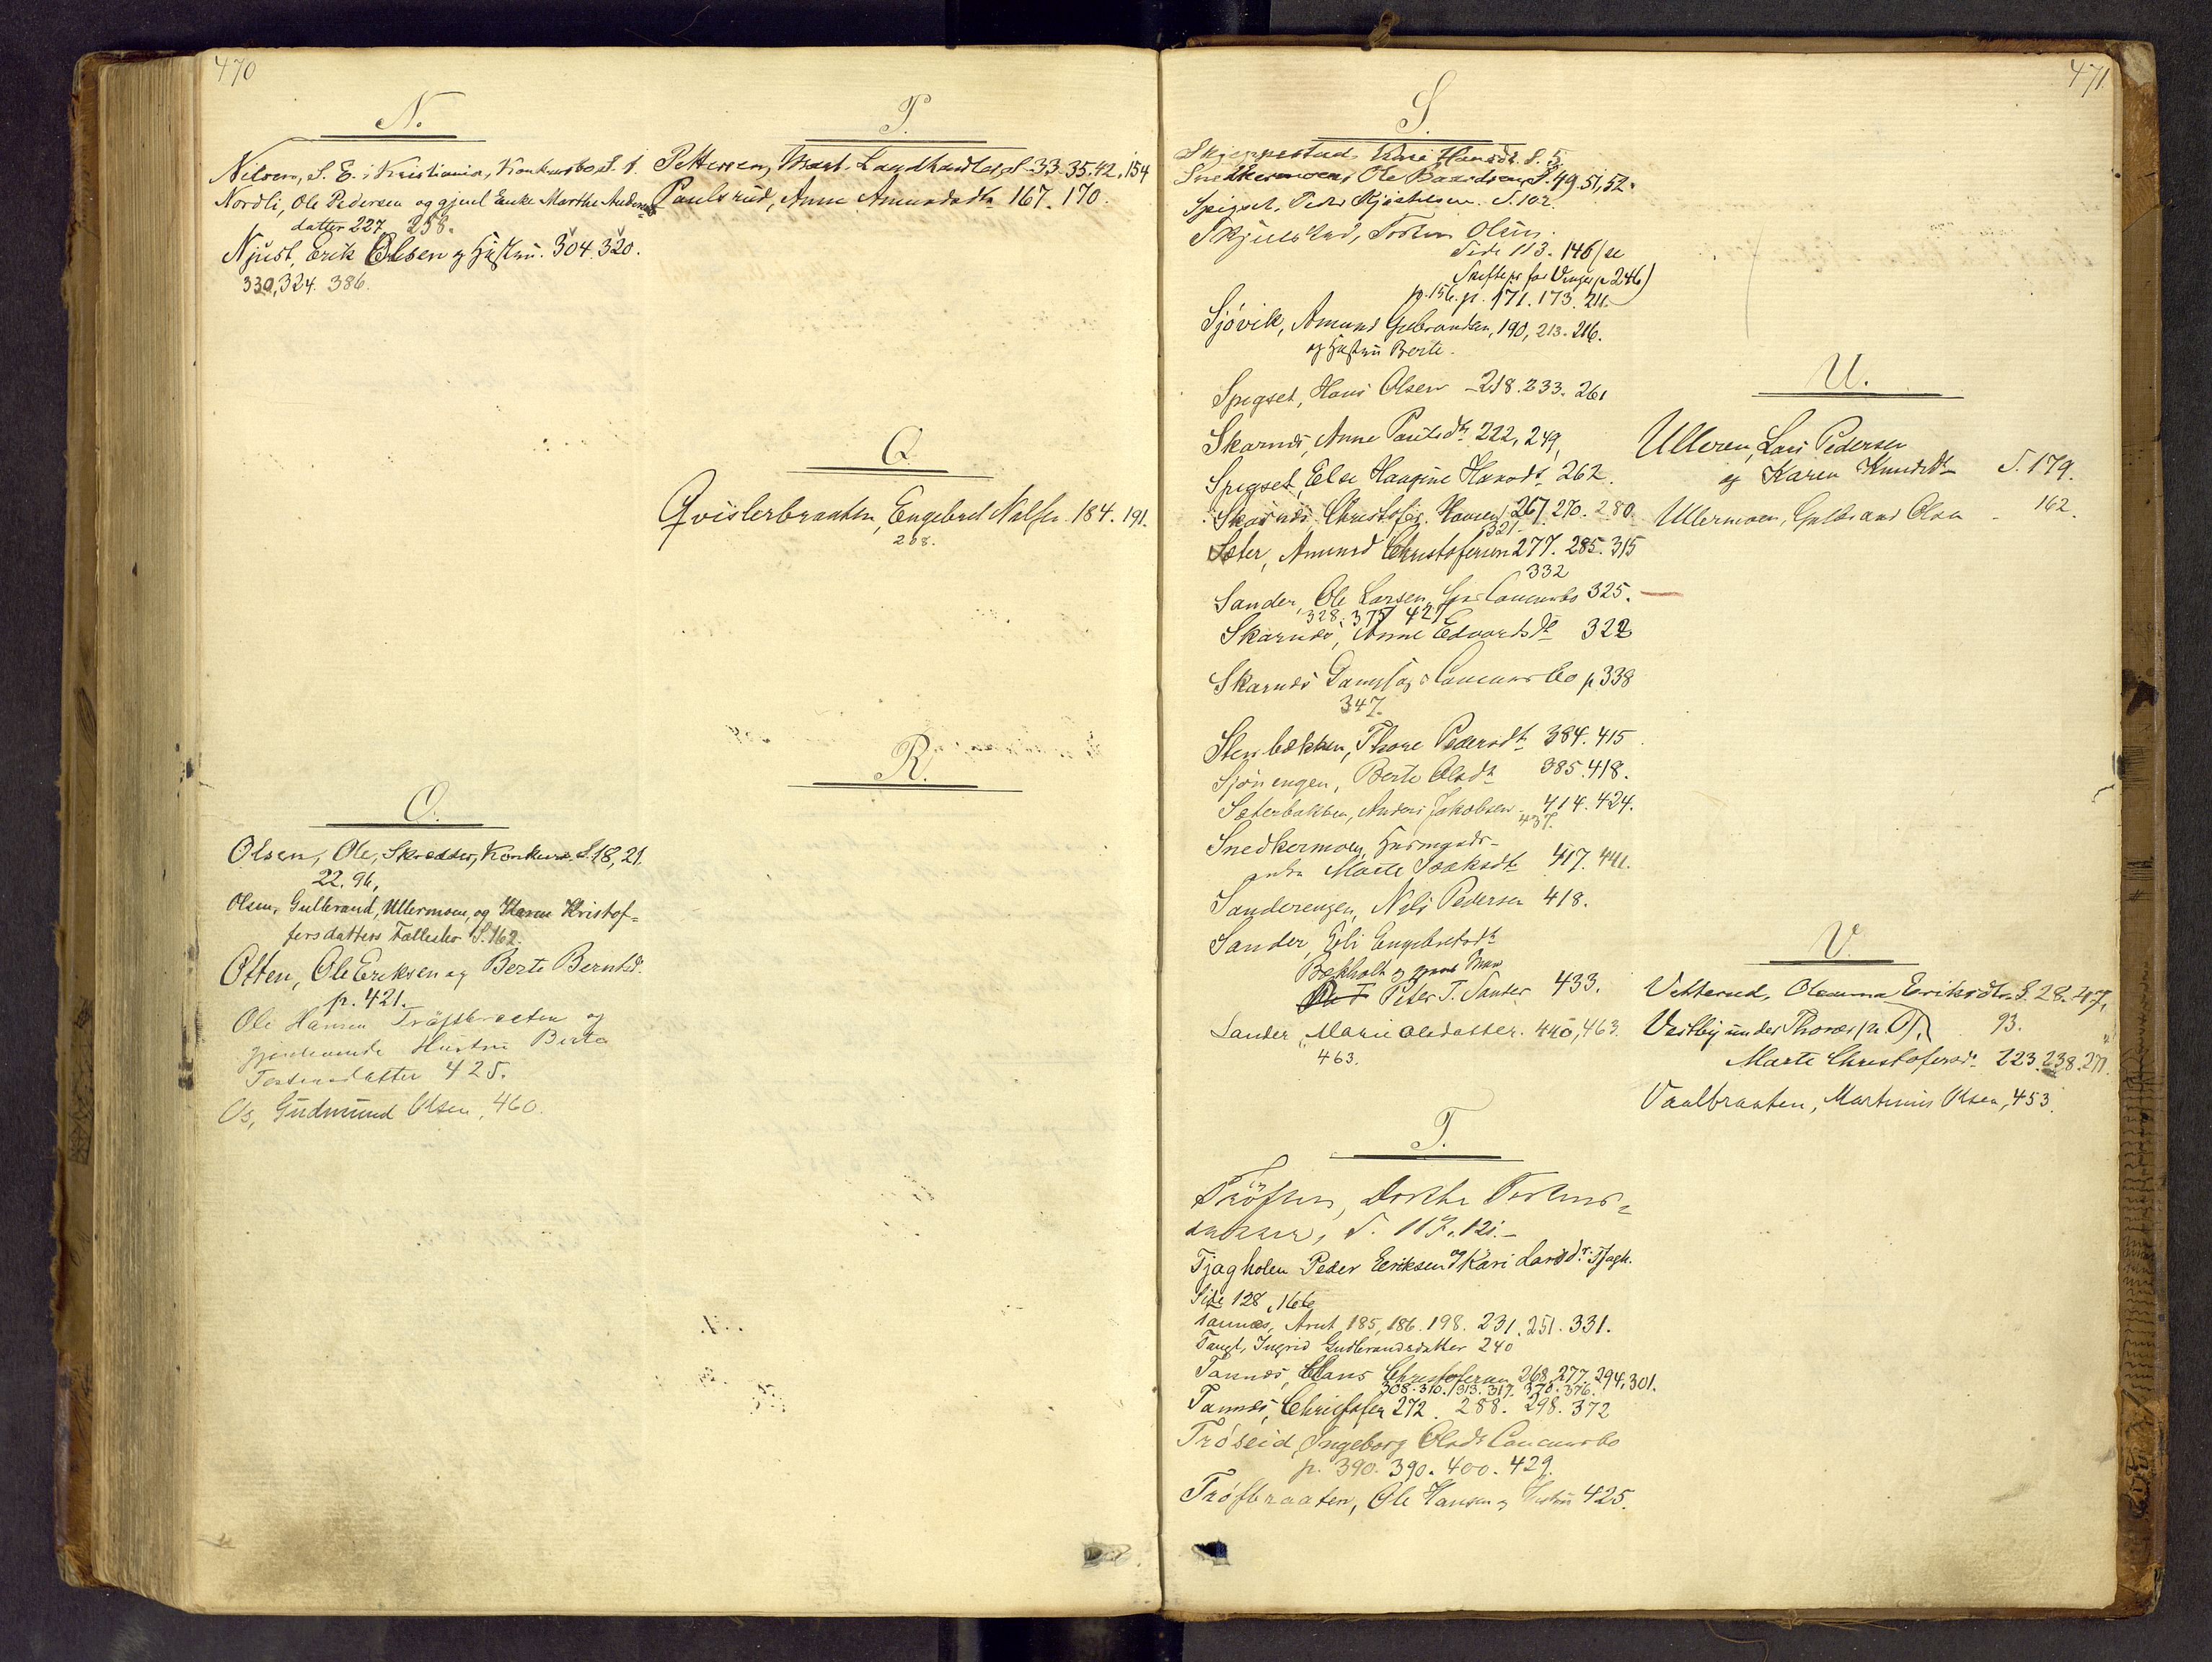 470
N.
Nilsen, S. E. i Kristiania, Konkursbo S. 1.
Nordli, Ole Pedersen og gjenl Enke Marthe Anders
datter 227, 258.
Njust, Erik Olsen og Hustru. 304. 320.
330, 324. 386.
O.
Olsen, Ole, Skrædder, Konkurs. S. 18, 21.
22. 96,
Olsen, Gulbrand, Ullermoen, og Karen Kristof-
fersdatters Fællesbo S. 162.
Otten, Ole Eriksen og Berte Berntsd.
p. 421.
Ole Hansen Tröftbraaten og
gjenlevende Hustru Berte
Tostensdatter 425.
Os, Gudmund Olsen, 460.
P.
Pettersen, Mart. Landhandler S. 33. 35. 42, 154
Paulsrud, Anne Amundsdtr 167. 170.
Q
Qvislerbraaten, Engebret Nilsen. 184. 191.
208.
R.
471.
S.
Skjeppestad, Kari Hansdtr. S. 5.
Snedkermoen, Ole Baardsen, S. 49. 51, 52.
Spigset, Peder Kjøstelsen. S. 102.
Skjulstad, Tosten Olsen.
Side 113. 146 (se
Skiftepr for Vinger p 246)
p. 156. p. 171. 173. 211.
Sjövik, Amund Gulbrandsen, 190, 213. 216.
og Hustru Berte.
Spigset, Hans Olsen - 218. 233. 261
Skarnes, Anne Paulsdtr 222, 249,
Spigset, Else Haagine Hansdtr 262.
Skarnes, Christofer Hansen 267. 270. 280.
321
Sæter, Amund Christofersen 277. 285. 315
332
Sander, Ole Larsen, Concursbo 325.
328. 375 421
Skarnes, Anne Edvardsdtr 322
Skarnes Dampsags Concursbo p 338
347.
Stenbekken, Thore Pedersdtr 384. 415
Sjönengen, Berte Olsdtr 385. 418.
Sæterbakken, Anders Jakobsen 414. 424.
437.
Snedkermoen, Husmands-
enke Marte Isaksdtr 417. 441.
Sanderengen, Nils Pedersen 418.
Sander, Eli Engebretsdtr
Bækholt og Man
Peter T. Sander 433.
Sander, Marie Olsdatter. 440, 463.
463.
T.
Tröften, Dorthe Tostens-
datter, S. 117. 121. -
Tjagholen Peder Eriksen og Kari Larsdr. Tjagh.
Side 128, 166
Tannæs, Arnt, 185, 186. 198. 231. 251. 331.
Taugl, Ingrid Gudbrandsdatter 240
Tannæs, Hans Christofersen 268. 277. 294. 301.
308. 310. 313. 317. 370. 376.
Tannæs, Christofer 272. 288. 298. 372
Tröseid, Ingeborg Olsdr Concursbo
p. 390. 390. 400. 429.
Tröftbraaten, Ole Hansen og Hustru 425.
U.
Ulleren, Lars Pedersen
og Karen Knudsdtr S. 179.
Ullermoen, Gulbrand Olsen - 162.
V.
Vetterud, Oleanna Eriksdtr. S. 28. 47,
Vestby under Thoræs (se O), 93.
Marte Christofersdr 223. 238. 271.
Vaalbraaten, Martinius Olsen, 453.